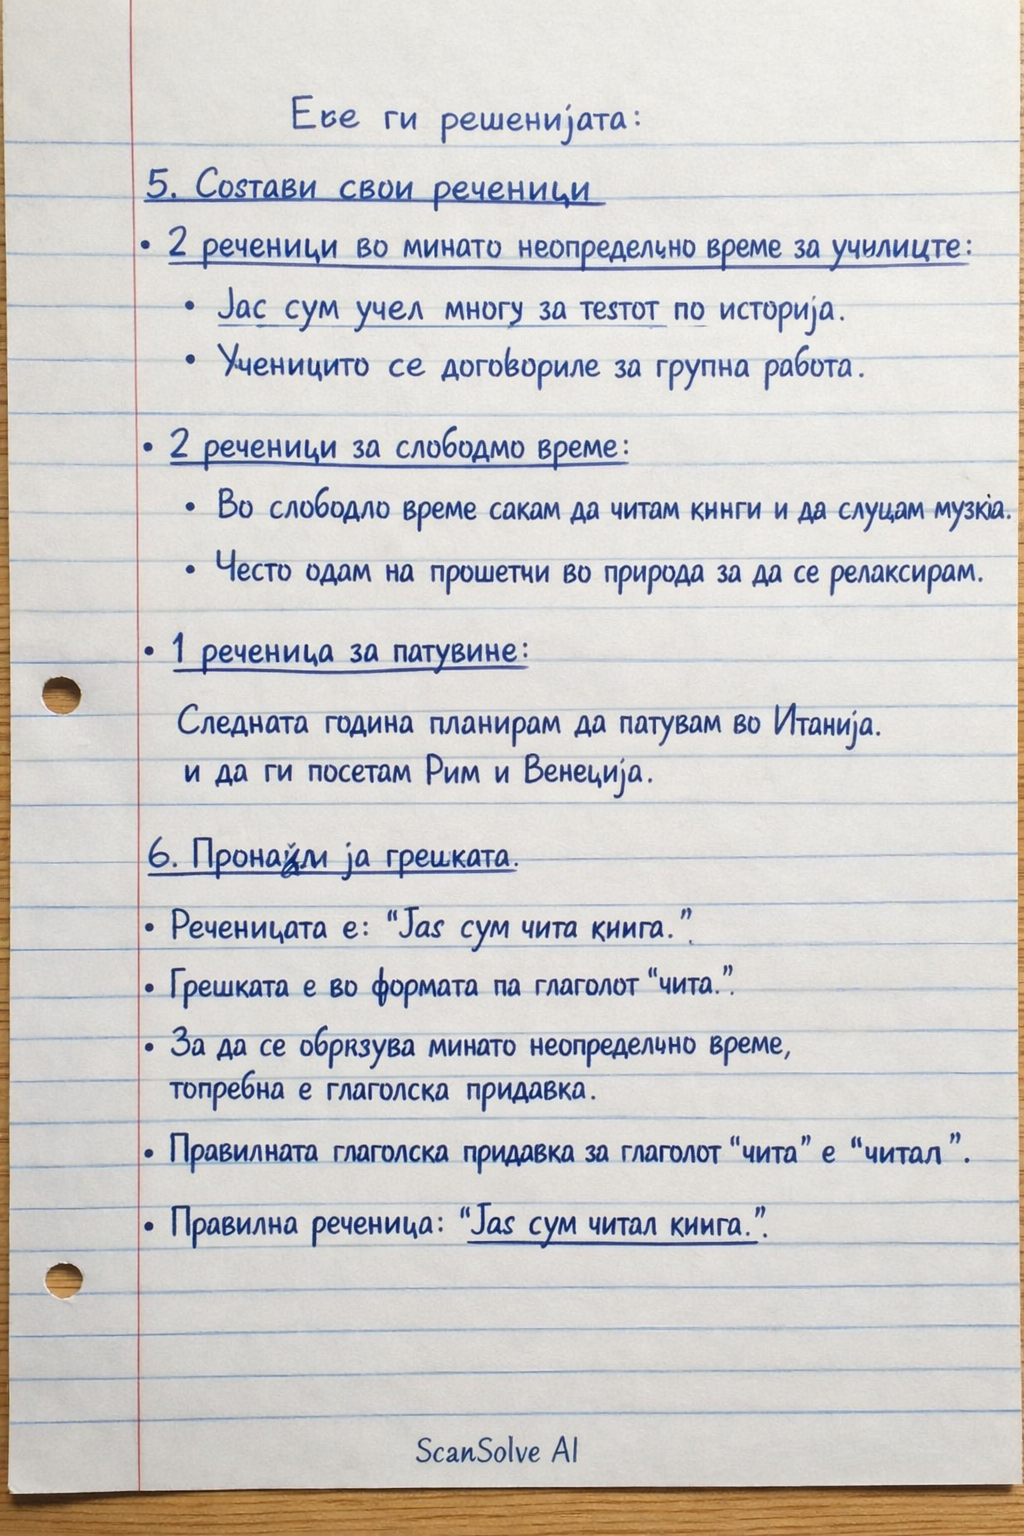 Еве ги решенијата:
5. Состави свои реченици
• 2 реченици во минато неопределно време за училиште:
• Јас сум учел многу за тестот по историја.
• Ученицито се договориле за групна работа.
• 2 реченици за слободмо време:
• Во слободло време сакам да читам книги и да слуцам музкіа.
• Често одам на прошетчи во природа за да се релаксирам.
• 1 реченица за патувине:
Следната година планирам да патувам во Итанија.
и да ги посетам Рим и Венеција.
6. ја грешката.
• Реченицата е: “Јаѕ сум чита книга.”.
• Грешката е во формата па глаголот “чита.”.
• За да се обрязува минато неопределно време,
топребна е глаголска придавка.
• Правилната глаголска придавка за глаголот “чита” е “читал”.
• Правилна реченица: “Јаѕ сум читал книга.”.
ScanSolve AI